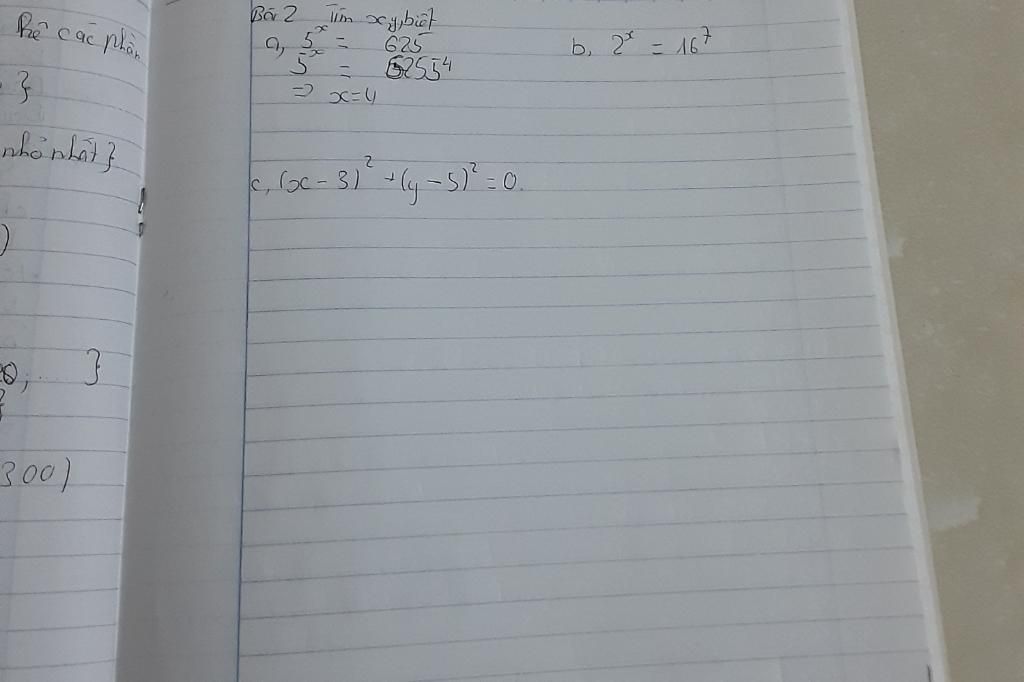 kê các phần
}
nhỏ nhất}
)
}
300)
Bài 2 Tìm x,y, biết
a, 5ˣ = 625
5ˣ = 5⁴
⇒ x=4
b, 2ˣ = 16⁷
c, (x-3)² + (y-5)² = 0.